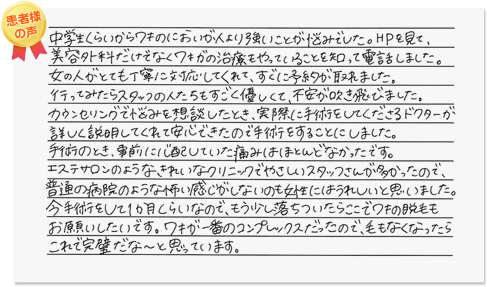 患者様
の声
中学生くらいからワキのにおいが人より強いことが悩みでした。HPを見て、
美容外科だけでなくワキガの治療をやっていることを知って電話しました。
女の人がとても丁寧に対応してくれて、すぐに予約が取れました。
行ってみたらスタッフの人たちもすごく優しくて、不安が吹き飛びました。
カウンセリングで悩みを相談したとき、実際に手術をしてくださるドクターが
詳しく説明してくれて安心できたので手術をすることにしました。
手術のとき、事前に心配していた痛みはほとんどなかったです。
エステサロンのような、きれいなクリニックでやさしいスタッフさんが多かったので、
普通の病院のような怖い感じがしないのも女性にはうれしいと思いました。
今手術をして1か月くらいなので、もう少し落ちついたらここでワキの脱毛も
お願いしたいです。ワキが一番のコンプレックスだったので、毛もなくなったら
これで完璧だな〜と思っています。